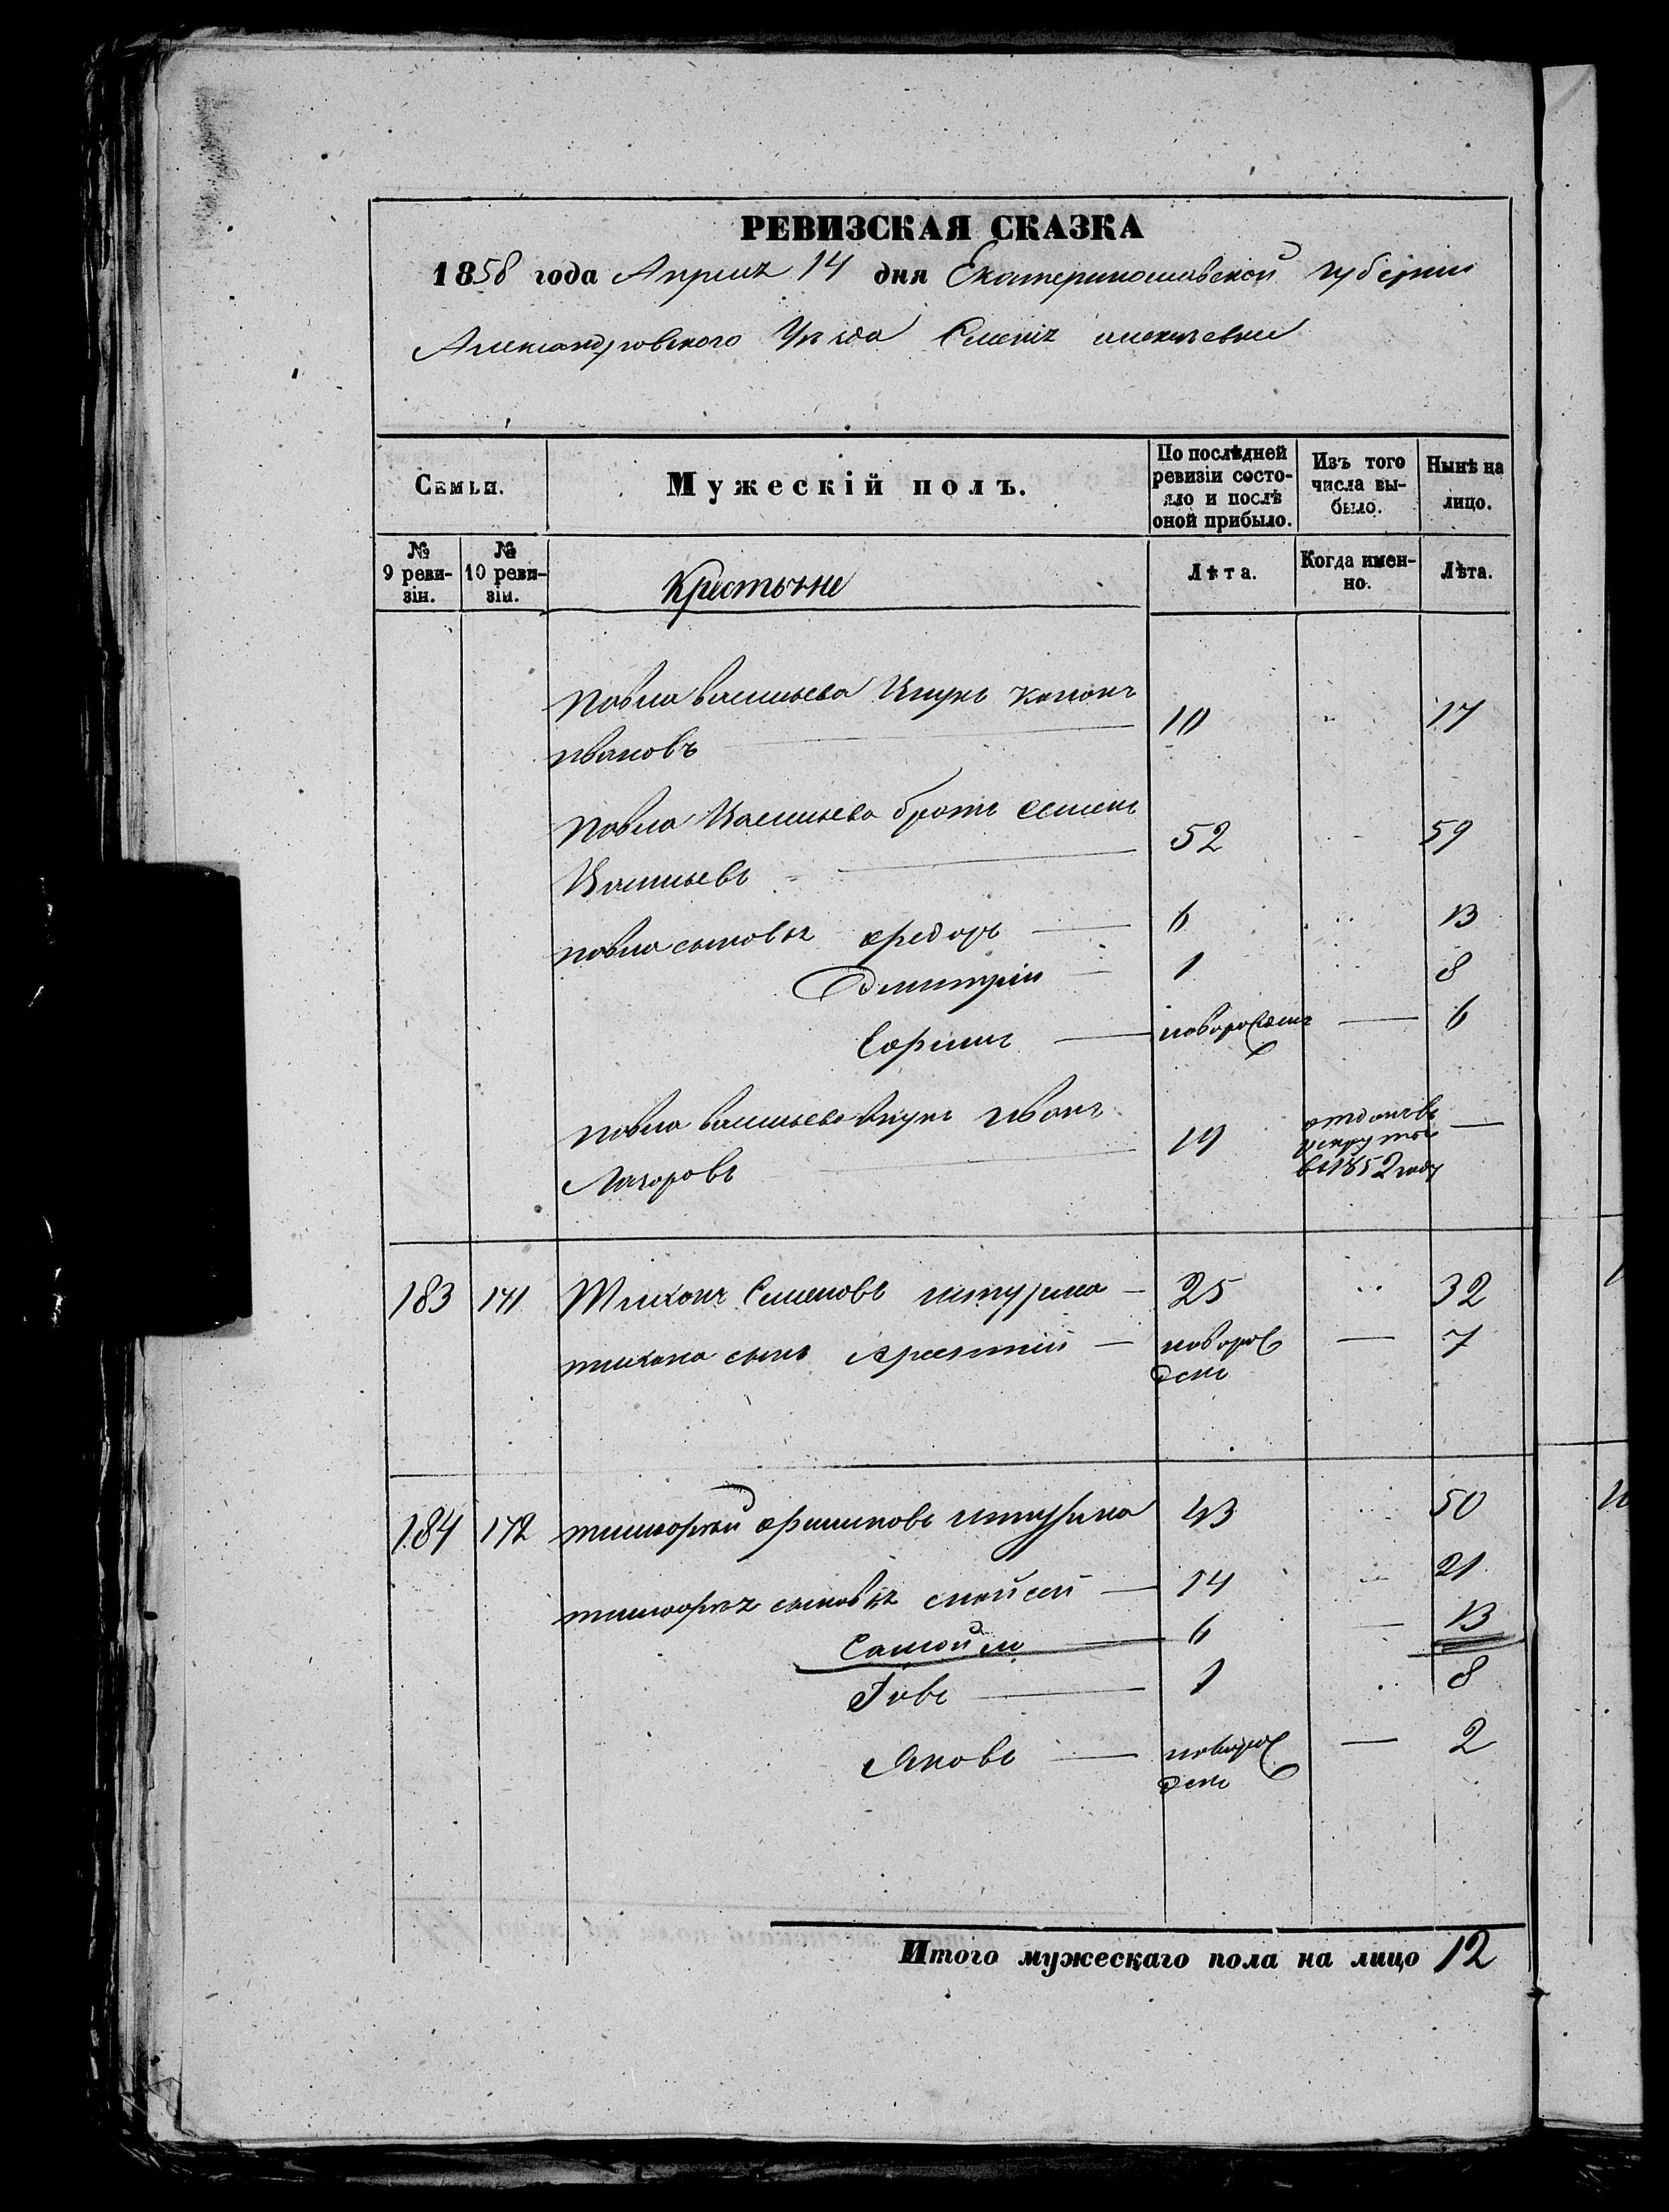 РЕВИЗСКАЯ СКАЗКА
1858 года Апреля 14 дня Екатеринославской губернии
Александровского Уезда
Семьи.
Мужескій полъ.
По послѣдней
ревизіи состо-
яло и послѣ
оной прибыло.
Изъ того
числа вы-
было.
Нынѣ на
лицо.
№
9 реви-
зіи.
№
10 реви-
зіи.
Крестьяне
Лѣта.
Когда имен-
но.
Лѣта.
Павла васильева Внукъ
ивановъ 10 17
Павла Васильева братъ Семенъ
Васильевъ 52 59
павла сыновья федоръ 6 13
Дмитрий 1 8
Ефимъ новорожденъ 6
павла васильева внукъ иванъ
Лазоровъ 19 отданъ въ
рекруты
в 1852 году
183 171 Тихонъ Семеновъ 25 32
тихона сынъ новорож
денъ 7
184 172 тимофей 43 50
тимофея сыновья 14 21
Самойло 6 13
Іовъ 1 8
Яковъ новорож
денъ 2
Итого мужескаго пола на лицо 12